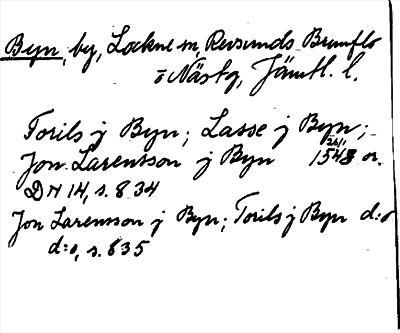 Byn, by, Lockne sn, Revsunds Brunflo
o Näskq, Jämtl. l.
Torils j Byn; Lasse j Byn;
Jon Larensson j Byn 24/1 1548 or.
DN 14, s. 834
Jon Larensson j Byn; Torils j Byn d:o
d:o, s. 835